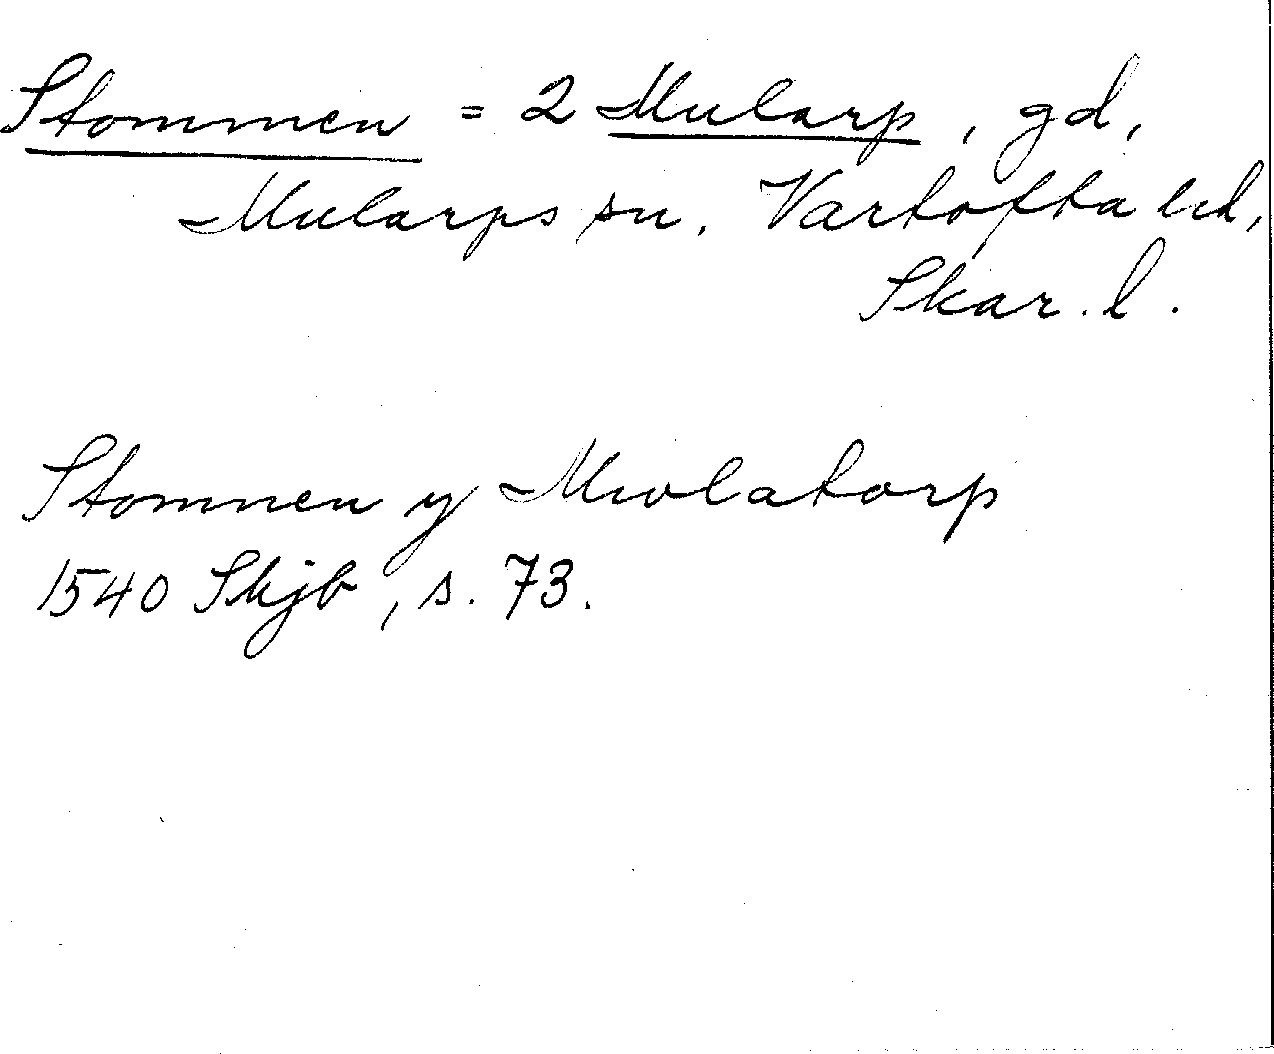 Stommen = 2 Mularp, gd,
Mularps sn, Vartofta hd,
Skar. l.
Stomnen y Mwlatorp
1540 Skjb, s. 73.